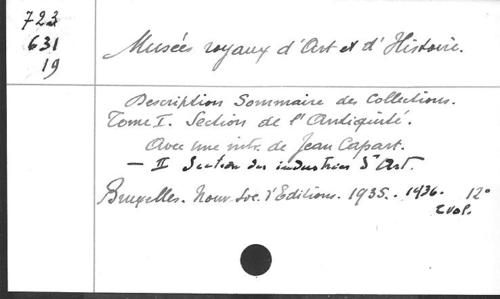 723
631
19
Musées royaux d'Art et d'Histoire.
Description Sommaire des Collections.
Tome I. Section de l'Antiquité.
Avec une intr. de Jean Capart.
— II Section des industries d'Art.
Bruxelles. Nouv. Soc. d'Editions. 1935. - 1936. 12°
2 vol.